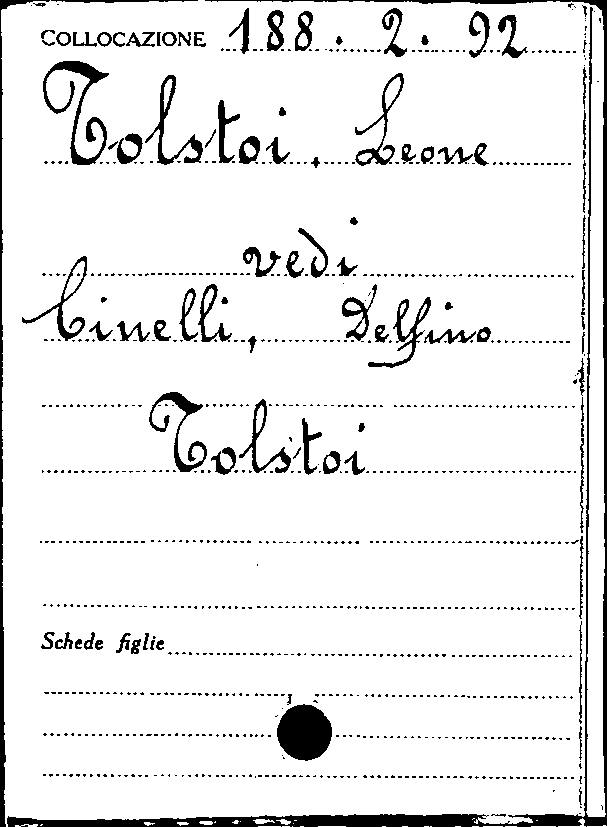 COLLOCAZIONE 188. 2. 92
Tolstoi, Leone
vedi
Cinelli, Delfino
Tolstoi
Schede figlie